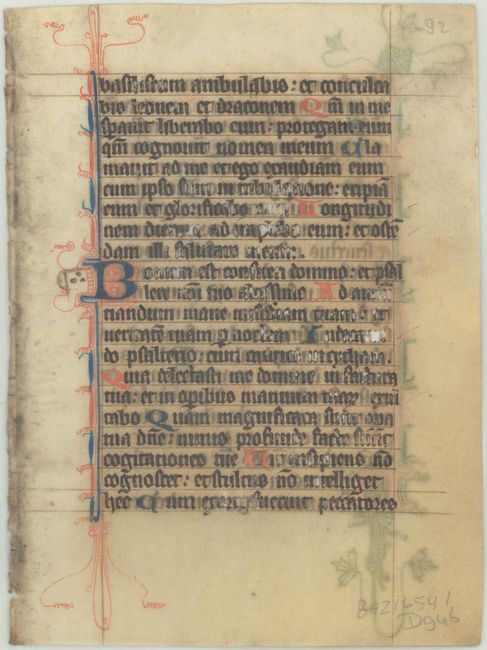 92
basiliscum ambulabis: et conculca
bis leonem et draconem Qm̄ in me
sperauit liberabo eum: protegam eum
qm̄ cognouit nomen meum Cla
mauit ad me et ego exaudiam eum
cum ipso sum in tribulatione: eripiā
eum et glorificabo Longitudi
nem dierum adimplebo eum: et ostē
dam illi salutare meum.
Bonum est confiteri domino: et psal
lere nomini tuo altissime Ad annū
tiandum mane misericordiam tuam: et
ueritatē tuam per noctem In decacor
do psalterio: cum cantico in cythara.
Quia delectasti me domine in factura
tua: et in operibus manuum tuarum exul
tabo Quam magnificata sunt opera
tua dn̄e: nimis profunde facte sunt
cogitationes tue Uir insipiens nō
cognoscet: et stultus nō intelliget
hec Cum exorti fuerint peccatores
D946